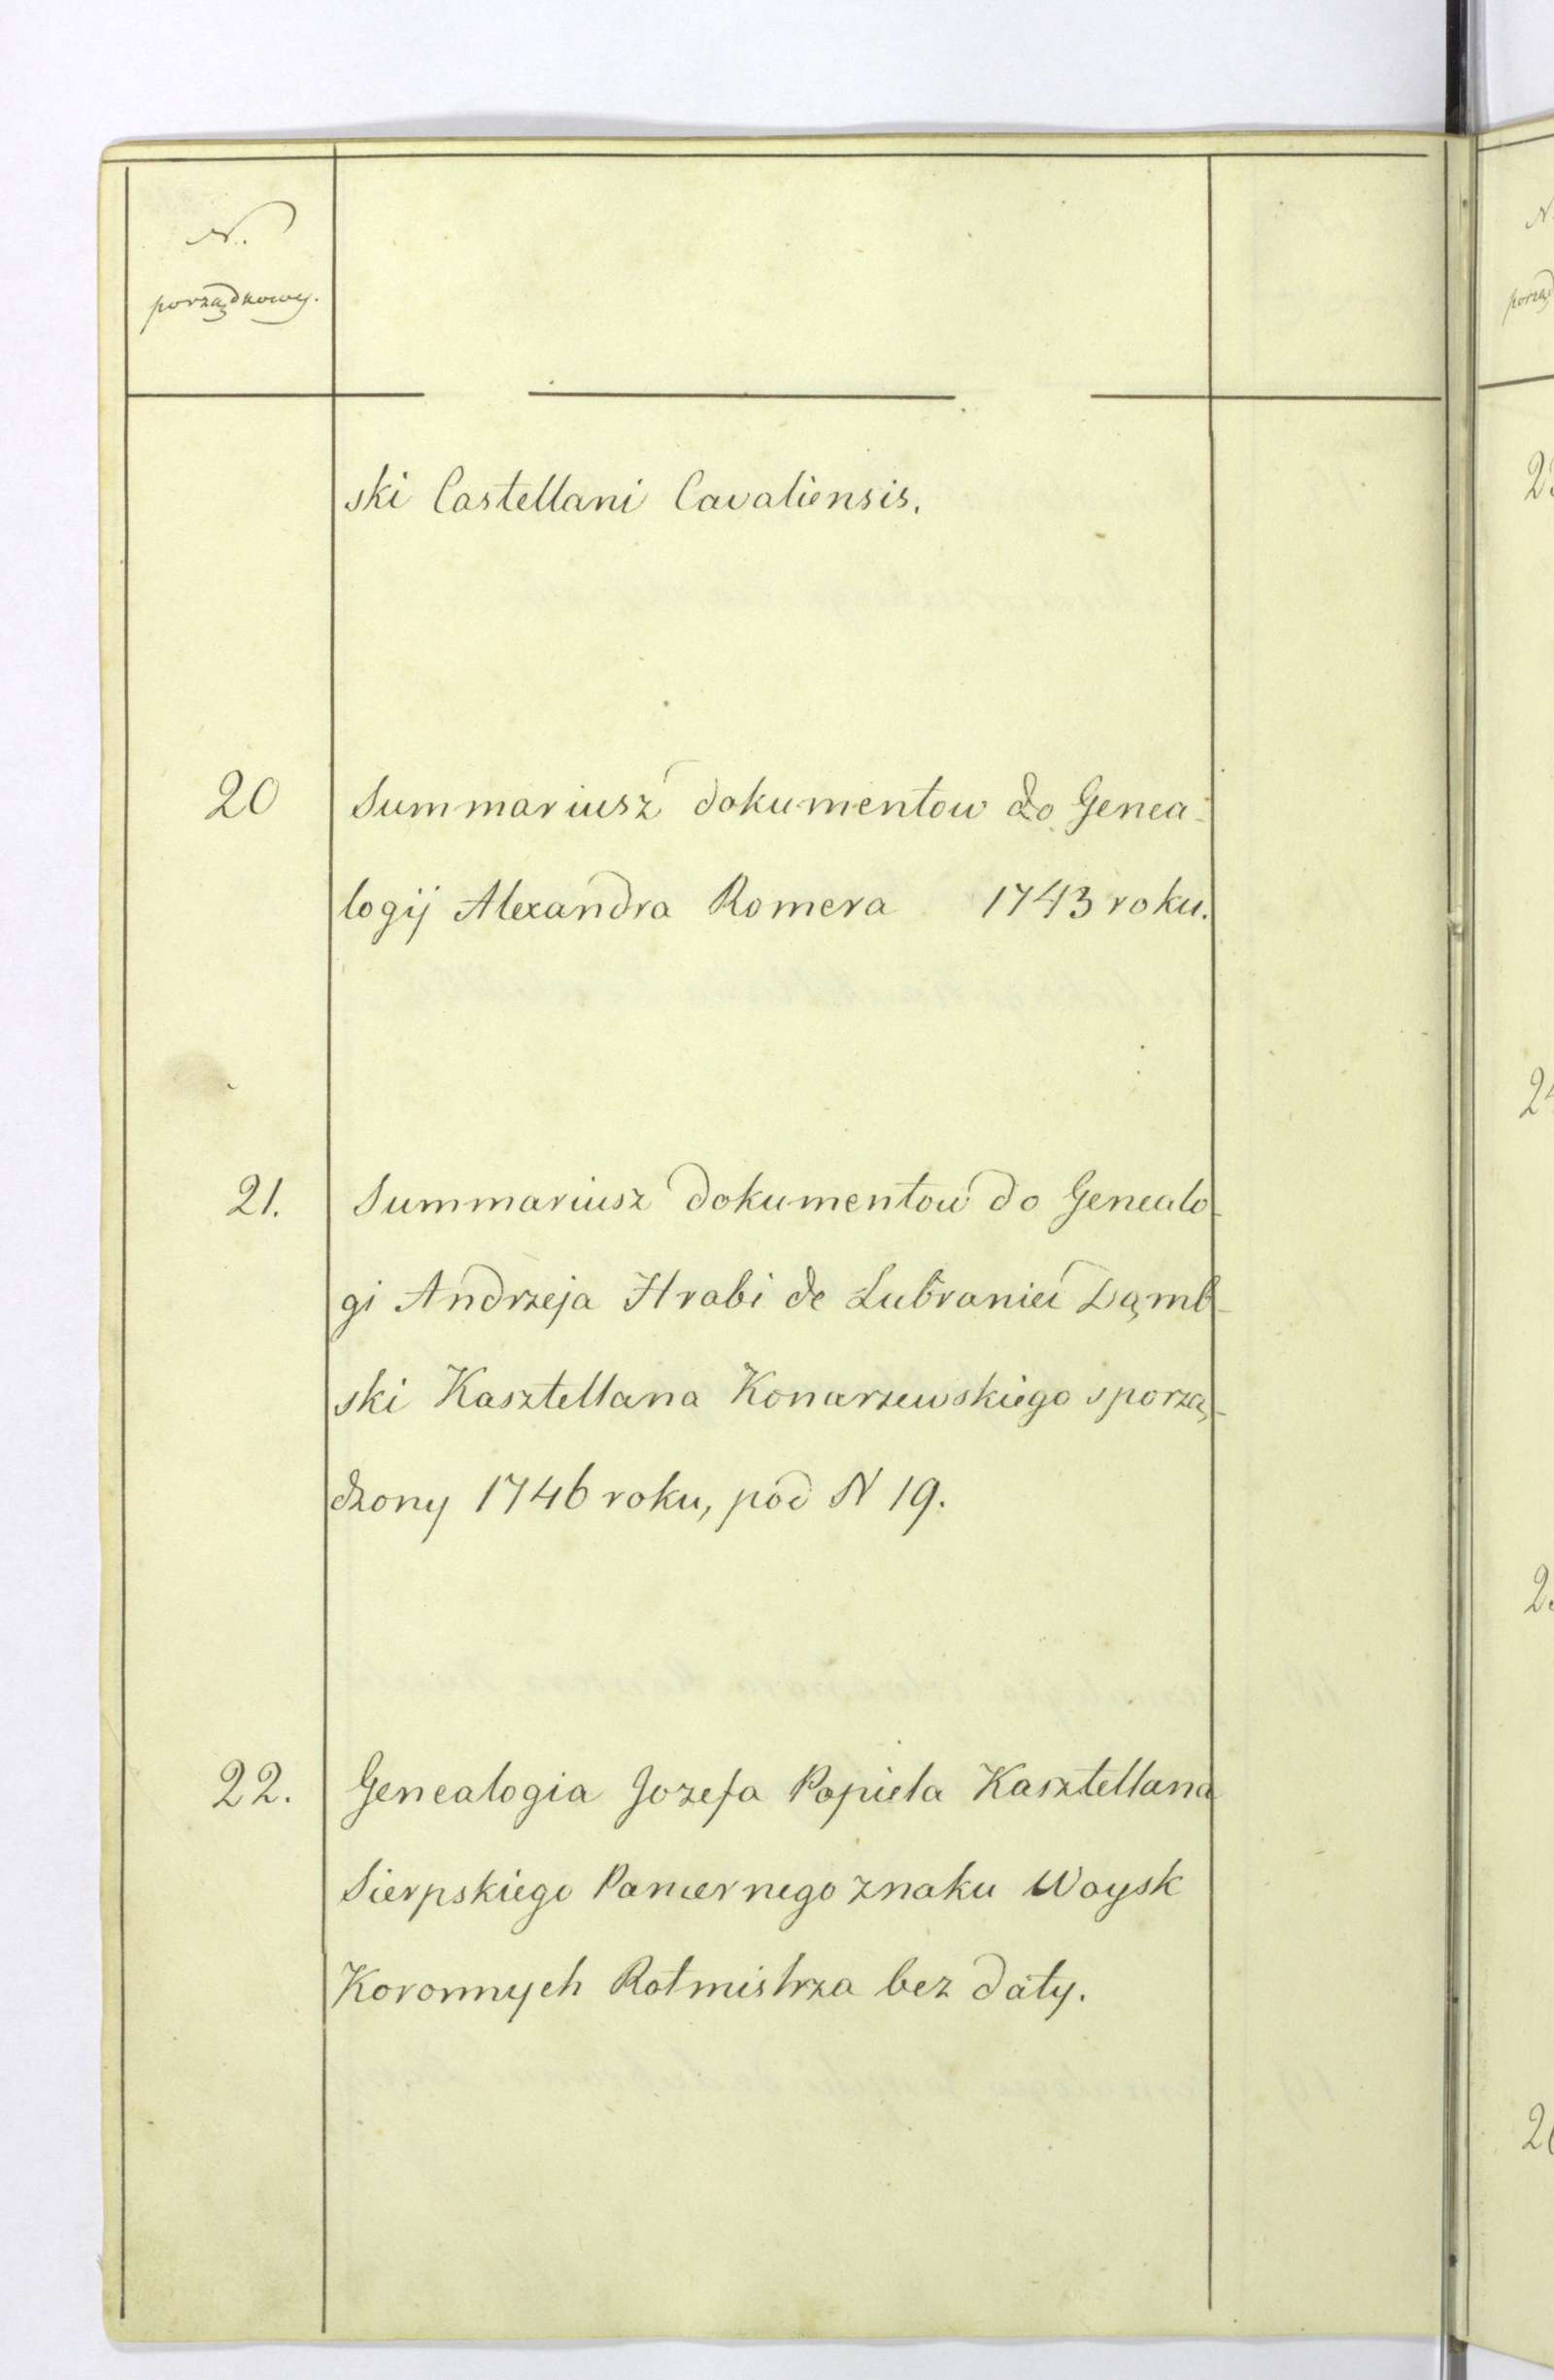 N.
porządkowy.
ski Castellani Cavaliensis.
20 Summariusz dokumentow do Genea-
logij Alexandra Romera 1743 roku.
21. Summariusz dokumentow do Genealo-
gi Andrzeja Hrabi de Lubraniec Dąmb-
ski Kasztellana Konarzewskiego sporzą-
dzony 1746 roku, pod N 19.
22. Genealogia Jozefa Popiela Kasztellana
Sierpskiego Pancernego znaku Woysk
Koronnych Rotmistrza bez daty.